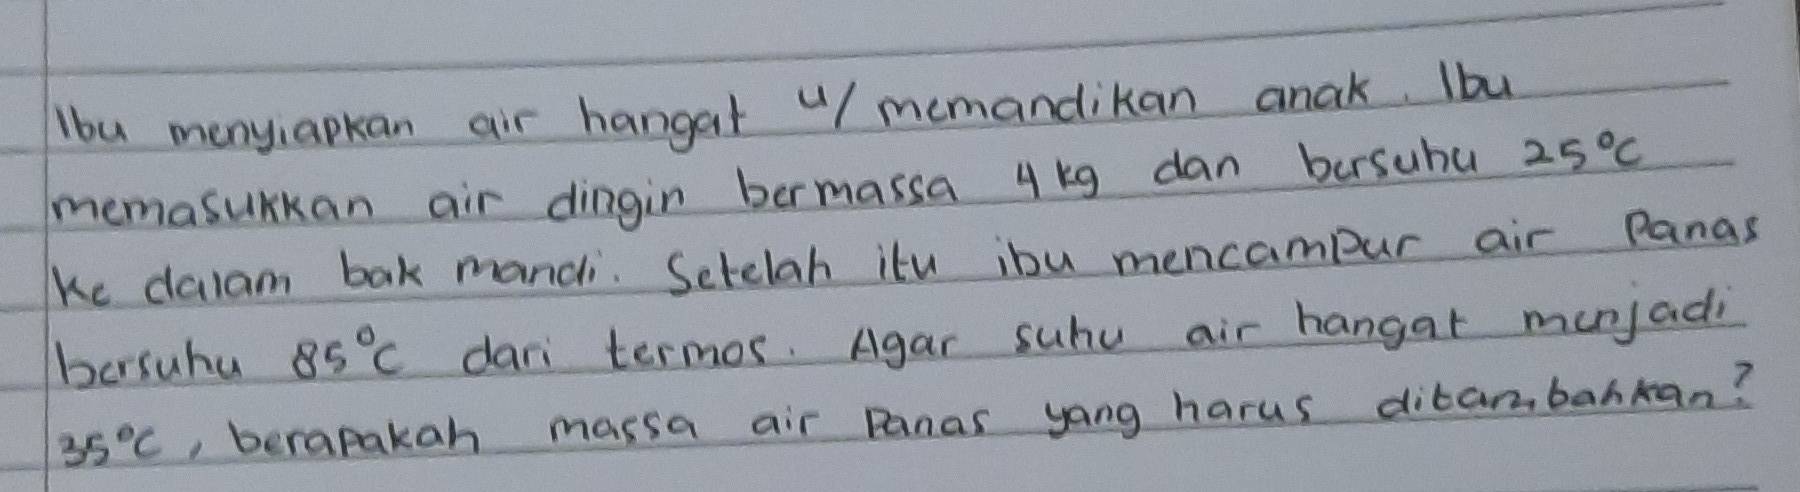 Ibu menyiapkan air hangat u/ memandikan anak. Ibu
memasukkan air dingin bermassa 4 kg dan bersuhu 25°C
ke dalam bak mandi. Setelah itu ibu mencampur air Panas
bersuhu 85°C dari termos. Agar suhu air hangat menjadi
35°C, berapakah massa air Panas yang harus ditambahkan?